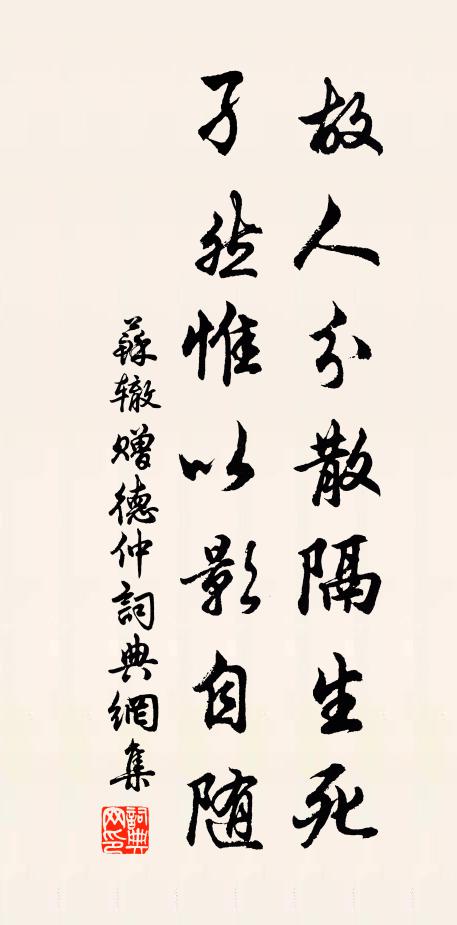 故人分散隔生死
孑然惟以影自随
蘇辙赠德仲詞典網集
詞典网印